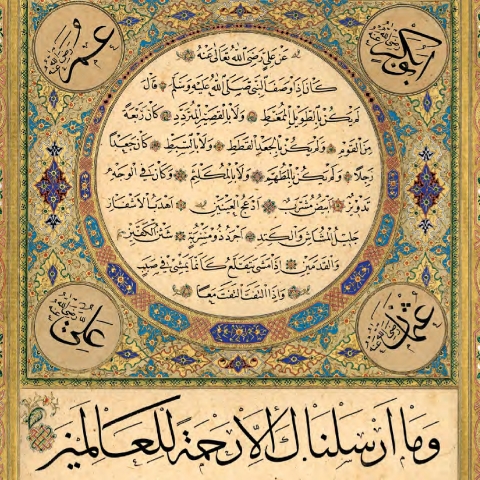 ابو بكر رضي الله عنه
عمر رضي الله عنه
عن علي رضي الله تعالى عنه
كان اذا وصف النبي صلى الله عليه وسلم قال
لم يكن بالطويل الممغط ولا بالقصير المتردد كان ربعة
من القوم ولم يكن بالجعد القطط ولا بالسبط كان جعدا
رجلا ولم يكن بالمطهم ولا بالمكلثم وكان في الوجه
تدوير ابيض مشرب ادعج العينين اهدب الاشفار
جليل المشاش والكتد اجرد ذو مسربة شثن الكفين
والقدمين اذا مشى يتقلع كانما يمشي في صبب
واذا التفت التفت معا
عثمان رضي الله عنه
علي رضي الله عنه
وما ارسلناك الا رحمة للعالمين